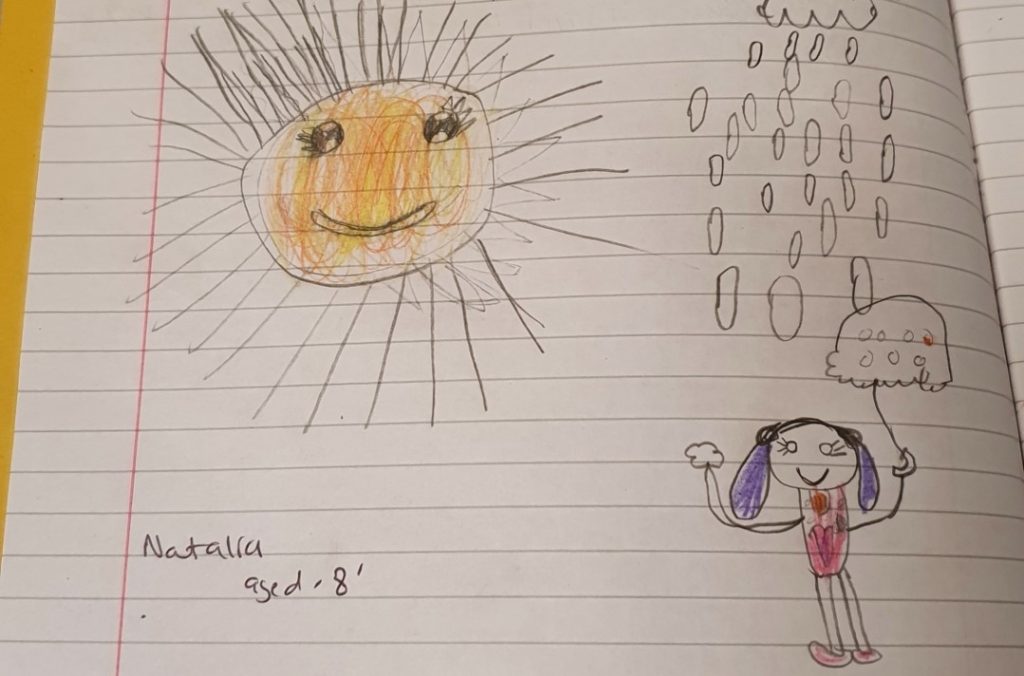 Natalia
aged . 8'